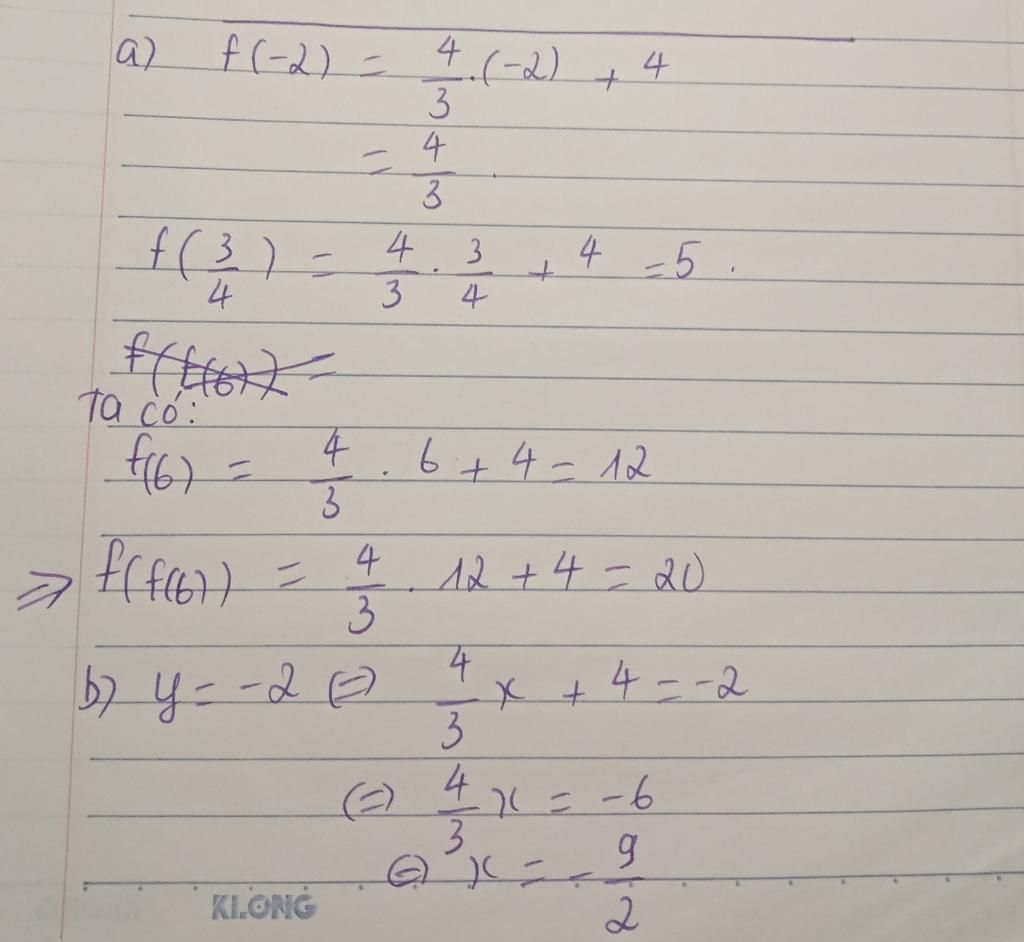 a) f(-2) = 4/3 . (-2) + 4
= 4/3 .
f(3/4) = 4/3 . 3/4 + 4 = 5 .
f(f(6)) =
Ta có:
f(6) = 4/3 . 6 + 4 = 12
=> f(f(6)) = 4/3 . 12 + 4 = 20
b) y = -2 (=) 4/3 x + 4 = -2
(=) 4/3 x = -6
(=) x = - 9/2
KLONG